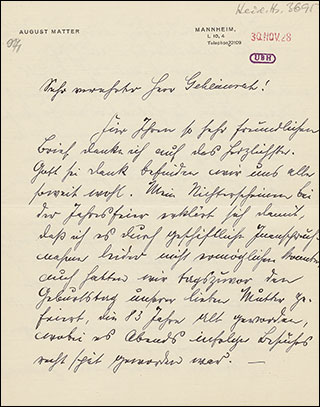 Heid. Hs. 3695
AUGUST MATTER
MANNHEIM,
L 10, 4
30. NOV. 28
UBH
Sehr verehrter Herr Geheimrat!
Für Ihren so sehr freundlichen
Brief danke ich auf das Herzlichste.
Gott sei Dank befinden wir uns alle
soweit wohl. Mein Nichterscheinen bei
der Jahresfeier erklärt sich damit,
daß ich es durch geschäftliche Inanspruch-
nahme leider nicht ermöglichen konnte,
auch hatten wir tags zuvor den
Geburtstag unserer lieben Mutter ge-
feiert, die 83 Jahre alt geworden,
wobei es Abends infolge Besuches
recht spät geworden war. —